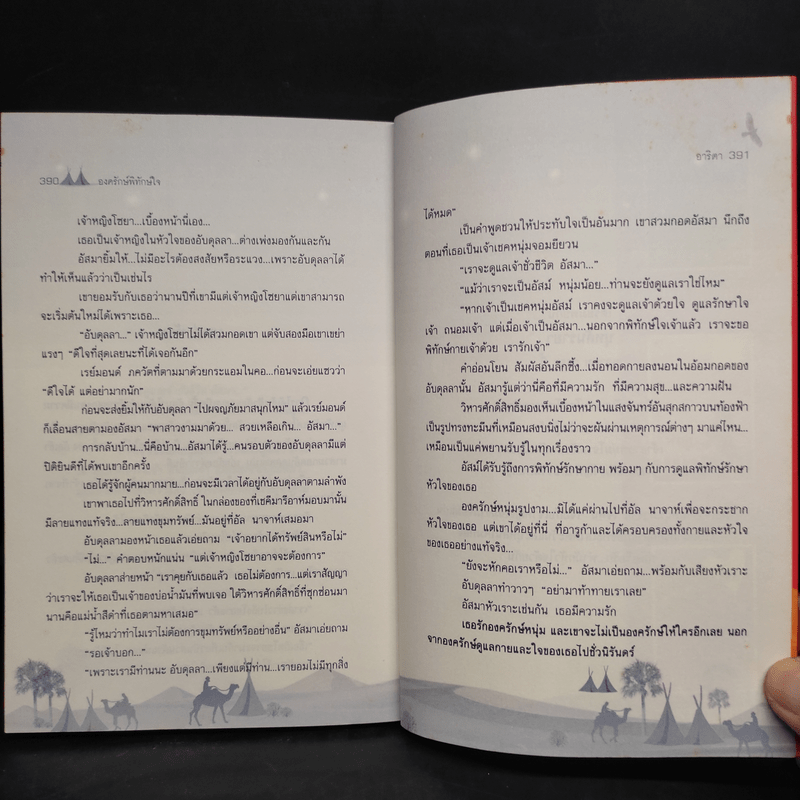 390 องครักษ์พิทักษ์ใจ
เจ้าหญิงโซยา...เบื้องหน้านี่เอง...
เธอเป็นเจ้าหญิงในหัวใจของอับดุลลา...ต่างเพ่งมองกันและกัน
อัสมายิ้มให้...ไม่มีอะไรต้องสงสัยหรือระแวง...เพราะอับดุลลาได้
ทำให้เห็นแล้วว่าเป็นเช่นไร
เขายอมรับกับเธอว่านานปีที่เขามีแต่เจ้าหญิงโซยาแต่เขาสามารถ
จะเริ่มต้นใหม่ได้เพราะเธอ...
“อับดุลลา...” เจ้าหญิงโซยาไม่ได้สวมกอดเขา แต่จับสองมือเขาเขย่า
แรงๆ “ดีใจที่สุดเลยนะที่ได้เจอกันอีก”
เรย์มอนด์ ภควัตที่ตามมาด้วยกระแอมในคอ...ก่อนจะเอ่ยแซวว่า
“ดีใจได้ แต่อย่ามากนัก”
ก่อนจะส่งยิ้มให้กับอับดุลลา “ไปผจญภัยมาสนุกไหม” แล้วเรย์มอนด์
ก็เลื่อนสายตามองอัสมา “พาสาวงามมาด้วย... สวยเหลือเกิน... อัสมา...”
การกลับบ้าน...นี่คือบ้าน...อัสมาได้รู้...คนรอบตัวของอับดุลลามีแต่
ปิติยินดีที่ได้พบเขาอีกครั้ง
เธอได้รู้จักผู้คนมากมาย...ก่อนจะมีเวลาได้อยู่กับอับดุลลาตามลำพัง
เขาพาเธอไปที่วิหารศักดิ์สิทธิ์ ในกล่องของที่เชคีมารีอาห์มอบมานั้น
มีลายแทงแท้จริง...ลายแทงขุมทรัพย์...มันอยู่ที่อัล นาจาห์เสมอมา
อับดุลลามองหน้าเธอแล้วเอ่ยถาม “เจ้าอยากได้ทรัพย์สินหรือไม่”
“ไม่...” คำตอบหนักแน่น “แต่เจ้าหญิงโซยาอาจจะต้องการ”
อับดุลลาส่ายหน้า “เราคุยกับเธอแล้ว เธอไม่ต้องการ...แต่เราสัญญา
ว่าเราจะให้เธอเป็นเจ้าของบ่อน้ำมันที่พบเจอ ใต้วิหารศักดิ์สิทธิ์ที่ซุกซ่อนมา
นานคือแม่น้ำสีดำที่เธอตามหาเสมอ”
“รู้ไหมว่าทำไมเราไม่ต้องการขุมทรัพย์หรืออย่างอื่น” อัสมาเอ่ยถาม
“รอเจ้าบอก...”
“เพราะเรามีท่านนะ อับดุลลา...เพียงแต่มีท่าน...เรายอมไม่มีทุกสิ่ง
อาริตา 391
ได้หมด”
เป็นคำพูดชวนให้ประทับใจเป็นอันมาก เขาสวมกอดอัสมา นึกถึง
ตอนที่เธอเป็นเจ้าเชคหนุ่มจอมยียวน
“เราจะดูแลเจ้าชั่วชีวิต อัสมา...”
“แม้ว่าเราจะเป็นอัสม์ หนุ่มน้อย...ท่านจะยังดูแลเราใช่ไหม”
“หากเจ้าเป็นเชคหนุ่มอัสม์ เราคงจะดูแลเจ้าด้วยใจ ดูแลรักษาใจ
เจ้า ถนอมเจ้า แต่เมื่อเจ้าเป็นอัสมา...นอกจากพิทักษ์ใจเจ้าแล้ว เราจะขอ
พิทักษ์กายเจ้าด้วย เรารักเจ้า”
คำอ่อนโยน สัมผัสอันลึกซึ้ง...เมื่อทอดกายลงนอนในอ้อมกอดของ
อับดุลลานั้น อัสมารู้แต่ว่านี่คือที่มีความรัก ที่มีความสุข...และความฝัน
วิหารศักดิ์สิทธิ์มองเห็นเบื้องหน้าในแสงจันทร์อันสุกสกาวบนท้องฟ้า
เป็นรูปทรงทะมึนที่เหมือนสงบนิ่งไม่ว่าจะผันผ่านเหตุการณ์ต่างๆ มาแค่ไหน...
เหมือนเป็นแค่พยานรับรู้ในทุกเรื่องราว
อัสม์ได้รับรู้ถึงการพิทักษ์รักษากาย พร้อมๆ กับการดูแลพิทักษ์รักษา
หัวใจของเธอ
องครักษ์หนุ่มรูปงาม...มิได้แค่ผ่านไปที่อัล นาจาห์เพื่อจะกระชาก
หัวใจของเธอ แต่เขาได้อยู่ที่นี่ ที่อารูก้าและได้ครอบครองทั้งกายและหัวใจ
ของเธออย่างแท้จริง...
“ยังจะหักคอเราหรือไม่...” อัสมาเอ่ยถาม...พร้อมกับเสียงหัวเราะ
อับดุลลาทำวาวๆ “อย่ามาท้าทายเราเลย”
อัสมาหัวเราะเช่นกัน เธอมีความรัก
เธอรักองครักษ์หนุ่ม และเขาจะไม่เป็นองครักษ์ให้ใครอีกเลย นอก
จากองครักษ์ดูแลกายและใจของเธอไปชั่วนิรันดร์